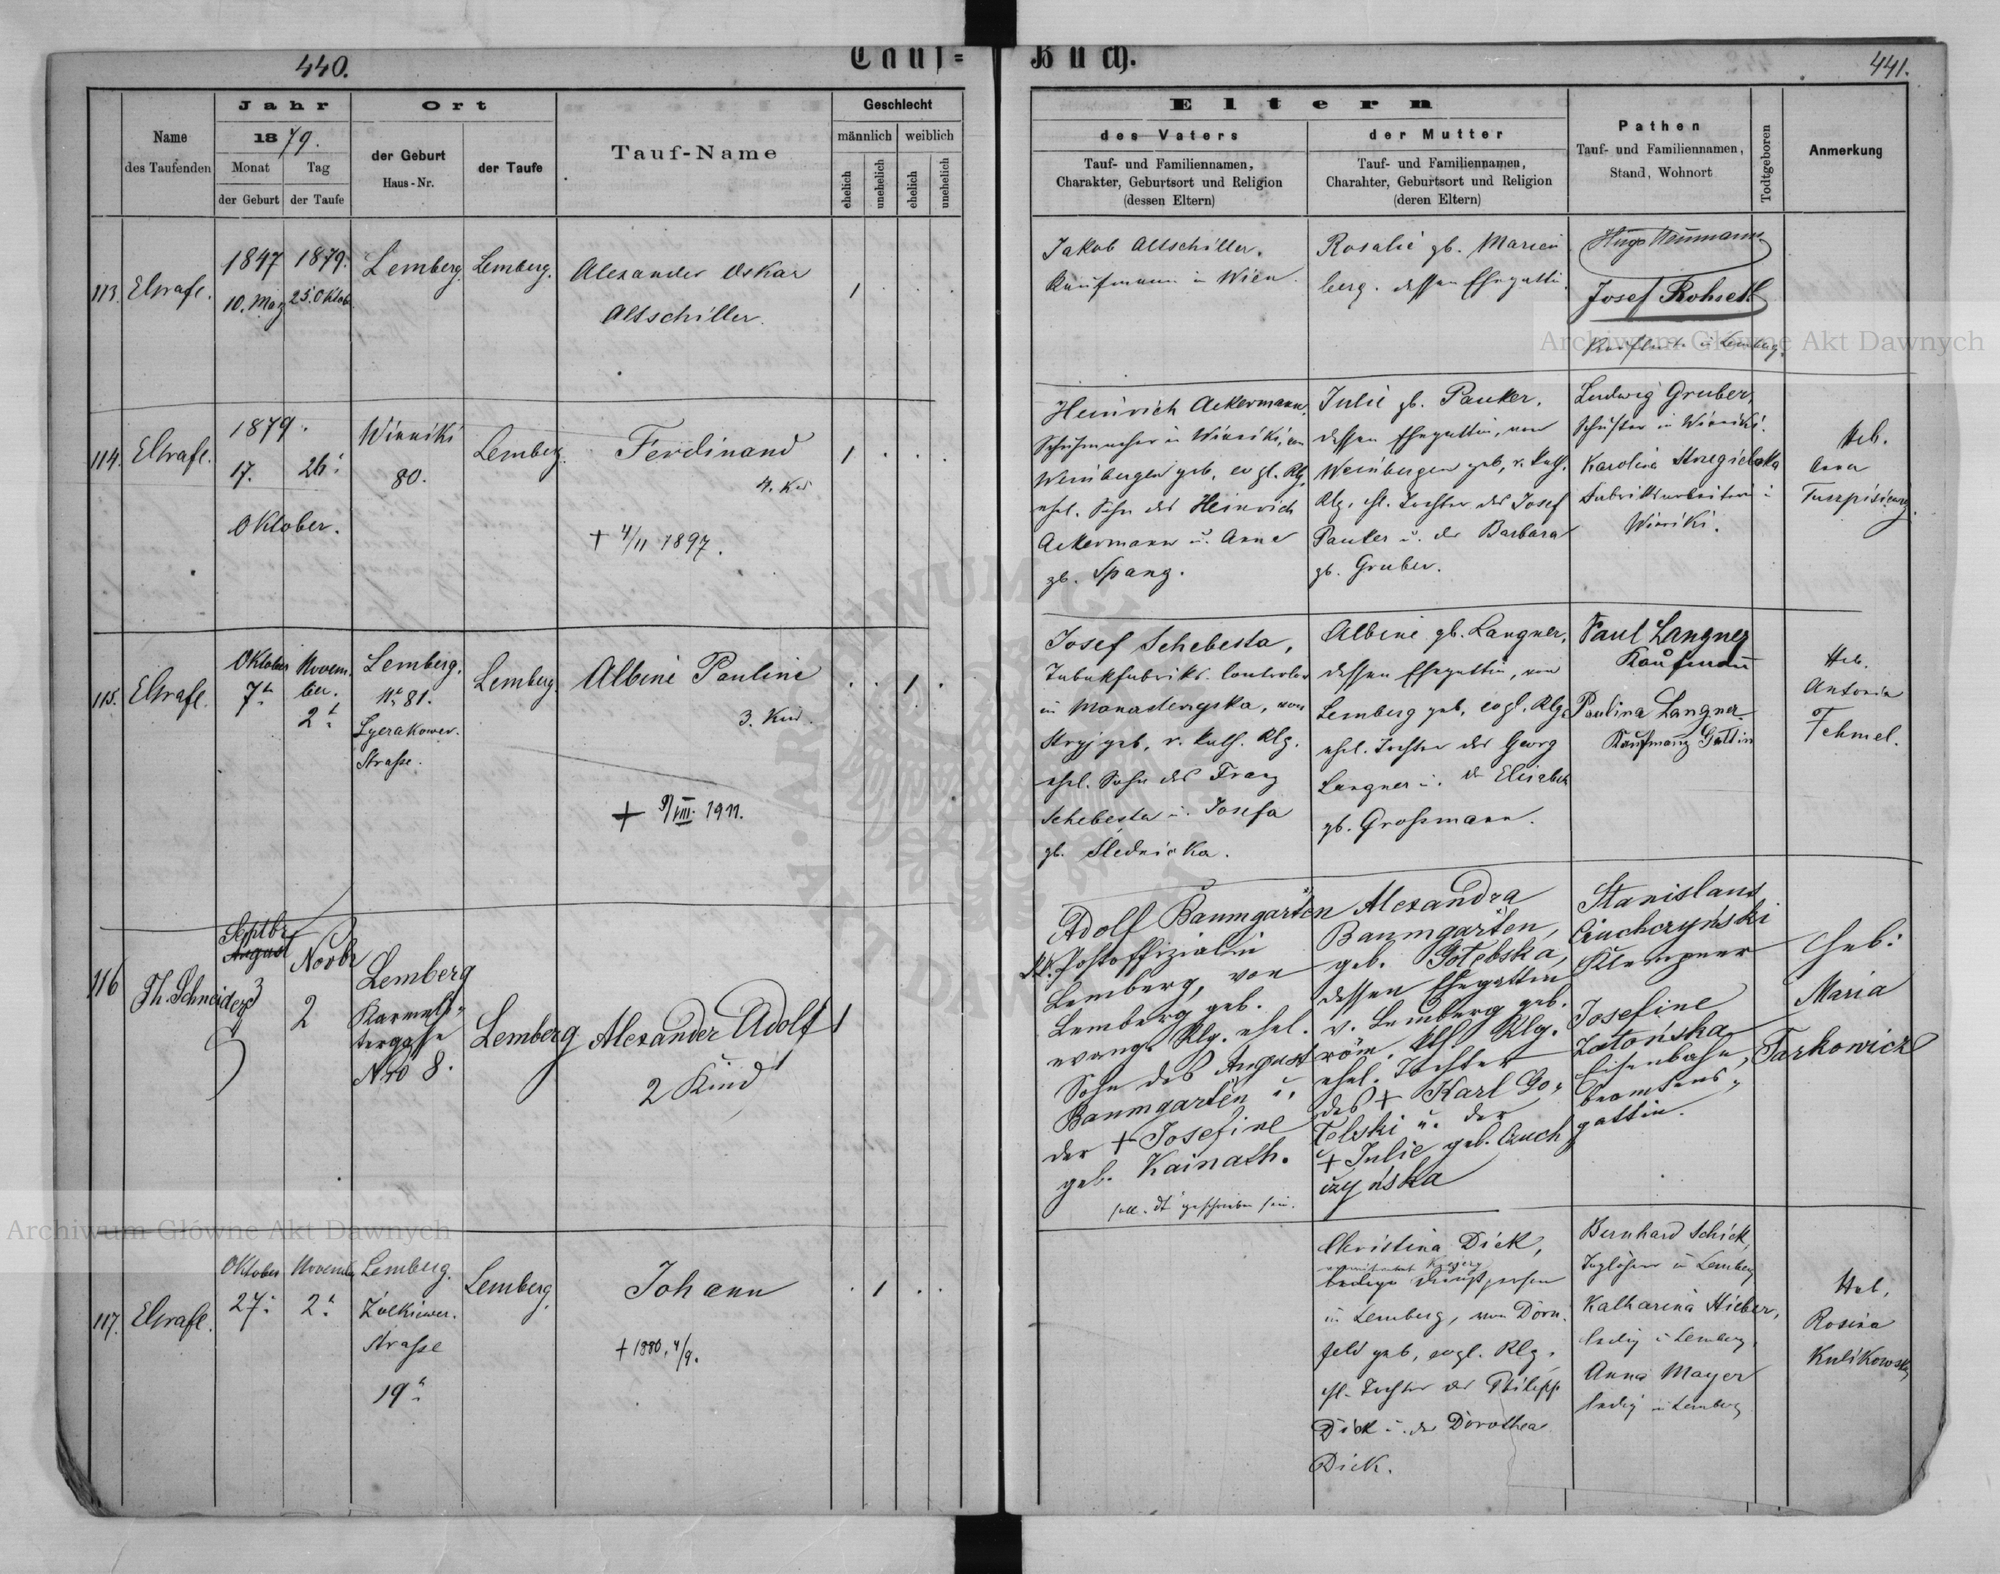 440.
Tauf=
Buch.
441.
Name
des Taufenden
Jahr
1879.
Monat
Tag
der Geburt
der Taufe
Ort
der Geburt
Haus-Nr.
der Taufe
Tauf-Name
Geschlecht
männlich
weiblich
ehelich
unehelich
ehelich
unehelich
Eltern
des Vaters
Tauf- und Familiennamen,
Charakter, Geburtsort und Religion
(dessen Eltern)
der Mutter
Tauf- und Familiennamen,
Charahter, Geburtsort und Religion
(deren Eltern)
Pathen
Tauf- und Familiennamen,
Stand, Wohnort
Todtgeboren
Anmerkung
113.
1847
10. May
1879.
25. Oktob.
Lemberg.
Lemberg.
Alexander Oskar
Altschiller.
1
Jakob Altschiller.
Kaufmann in Wien.
Rosalie gb. Marien
berg. dessen Ehegatti.
Hugo Neumann
Josef
in Lemberg.
114.
1879.
17.
26.
Oktober.
Winniki
80.
Lemberg.
Ferdinand
4. Kd
+ 4/11 1897.
1
Heinrich Ackermann,
Schuhmacher in Winniki, von
Weinbergen geb. evgl. Rlg.
ehel. Sohn des Heinrich
Ackermann u. Anna
gb. Spang.
Julie gb. Pauker,
dessen Ehegattin, von
Weinbergen geb, r. kath.
Rlg. ehl. Tochter des Josef
Pauker u. der Barbara
gb. Gruber.
Ludwig Gruber,
Schuster in Winniki.
Karolina
Fabriksarbeiterin in
Winniki.
Heb.
Anna
115.
Oktober
7.
Novem
ber.
2.
Lemberg.
Nr 81.
Lyczakower.
Straße.
Lemberg.
Albine Pauline
3. Kind.
+ 9/VIII. 1911.
1
Josef Schebesta,
Tabakfabriks. Controlor
in Monasterzyska, von
Stryj geb, r. kath. Rlg.
ehel. Sohn des Franz
Schebesta u. Josefa
gb. Slednicka.
Albine gb. Langner,
dessen Ehegattin, von
Lemberg geb, evgl. Rlg.
ehel. Tochter des Georg
Langner u. der Elisabeth
gb. Großmann.
Paul Langner
Kaufmann
Paulina Langner
Kaufmanns Gattin
Heb.
Antonia
Tehmel.
116
Th. Schneider
Septbr
August
3
Novbr
2
Lemberg
Karmeli-
tergasse
Nro 8.
Lemberg
Alexander Adolf
2 Kind
1
Adolf Baumgarten
k.k. Postoffizial in
Lemberg, von
Lemberg geb.
evang. Rlg. ehel.
Sohn des August
Baumgarten u.
der + Josefine
geb. Kainath.
soll "dt" geschrieben sein.
Alexandra
Baumgarten,
geb. Golebska,
dessen Ehegattin
v. Lemberg geb.
röm. kth. Rlg.
ehel. Tochter
des + Karl Go-
lebski u. der
+ Julie geb. Czuch
czyńska
Stanislaus
Czuchczyński
Klempner
Josefine
Zatońska
Eisenbahn-
beamtens-
gattin.
Heb:
Maria
Tarkowicz
117.
Oktober
27.
November
2.
Lemberg.
Zolkiewer.
Strasse
19.
Lemberg.
Johann
+ 1880, 4/9.
1
Christina Dick,
ledige Dienstperson
in Lemberg, von Dorn.
feld geb, evgl. Rlg.
ehl. Tochter des Philipp
Dick u. der Dorothea
Dick.
Bernhard Schick,
Taglöhner in Lemberg
Katharina Hieber,
ledig in Lemberg.
Anna Mayer
ledig in Lemberg
Heb.
Rosina
Kulikowska
Archiwum Główne Akt Dawnych
Archiwum Główne Akt Dawnych